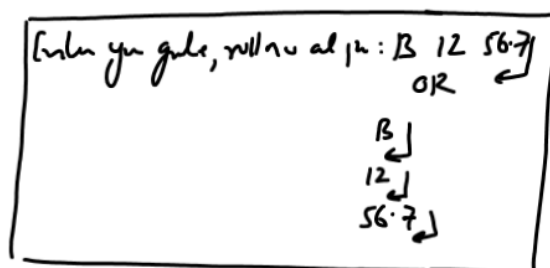 Enter your grade, roll no and per : B 12 56.7
OR
B
12
56.7